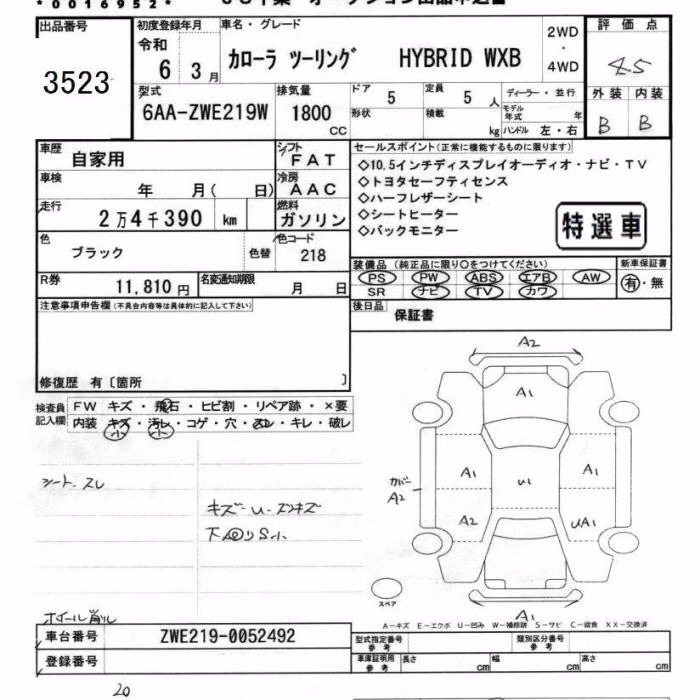 *0016952*
出品番号
3523
初度登録年月
令和
6 3月
車名・グレード
カローラ ツーリング HYBRID WXB
2WD
・
4WD
評価点
4.5
外装 内装
B B
型式
6AA-ZWE219W
排気量
1800
CC
ドア
5
定員
5 人
形状
積載
kg
ディーラー・並行
モデル年式 年
ハンドル 左・右
車歴
自家用
シフト
FAT
車検
年 月( 日)
冷房
AAC
走行
2万4千390 km
燃料
ガソリン
色
ブラック
色替
色コード
218
R券
11,810円
名変通知期限
月 日
セールスポイント(正常に機能するものに限ります)
◇10.5インチディスプレイオーディオ・ナビ・TV
◇トヨタセーフティセンス
◇ハーフレザーシート
◇シートヒーター
◇バックモニター
特選車
装備品(純正品に限り○をつけてください)
PS PW ABS エアB AW
SR ナビ TV カワ
新車保証書
有・無
後日品
保証書
注意事項申告欄(不具合内容等は具体的に記入して下さい)
修復歴 有〔箇所 〕
検査員
記入欄
FW キズ・飛石・ヒビ割・リペア跡・×要
内装 キズ・汚レ・コゲ・穴・スレ・キレ・破レ
小 小
シート スレ
キズ・U・スリキズ
ホイール削れ
A2
A1
A1
U1
A1
カバー
A2
A2
UA1
A1
スペア
A-キズ E-エクボ U-凹み W-補修跡 S-サビ C-腐食 XX-交換済
車台番号
ZWE219-0052492
登録番号
型式指定番号
参考
類別区分番号
参考
車庫証明用
参考
長さ cm
幅 cm
高さ cm
20